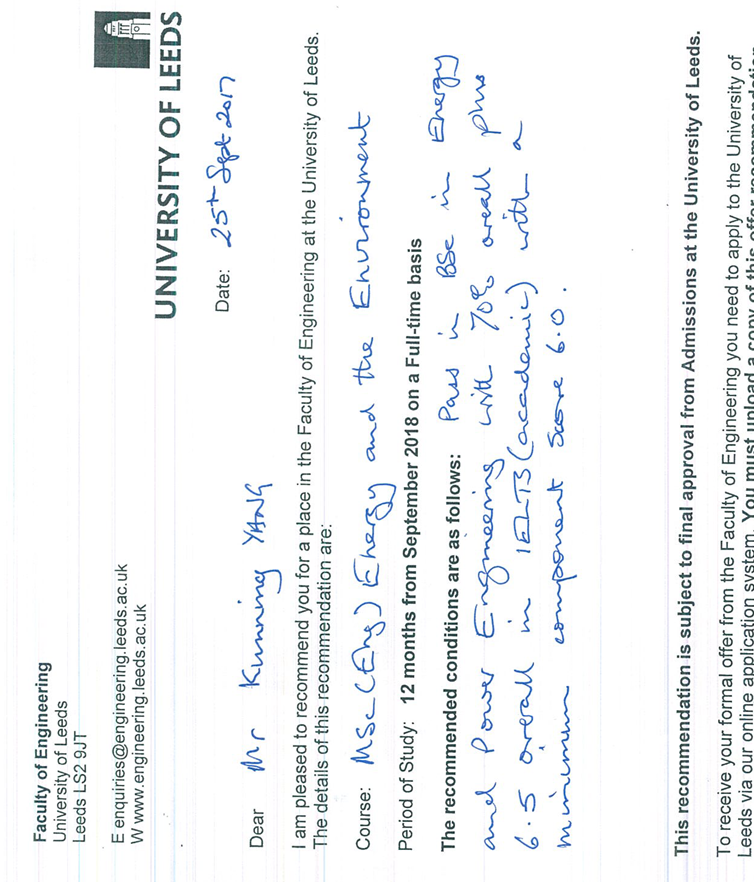 Faculty of Engineering
University of Leeds
Leeds LS2 9JT
E enquiries@engineering.leeds.ac.uk
W www.engineering.leeds.ac.uk
UNIVERSITY OF LEEDS
Date: 25th Sept 2017
Dear Mr Kunning YANG
I am pleased to recommend you for a place in the Faculty of Engineering at the University of Leeds.
The details of this recommendation are:
Course: MSc(Eng) Energy and the Environment
Period of Study: 12 months from September 2018 on a Full-time basis
The recommended conditions are as follows: Pass in BSc in Energy
and Power Engineering with 70% overall plus
6.5 overall in IELTS (academic) with a
minimum component score 6.0.
This recommendation is subject to final approval from Admissions at the University of Leeds.
To receive your formal offer from the Faculty of Engineering you need to apply to the University of
Leeds via our online application system. You must upload a copy of this offer recommendation